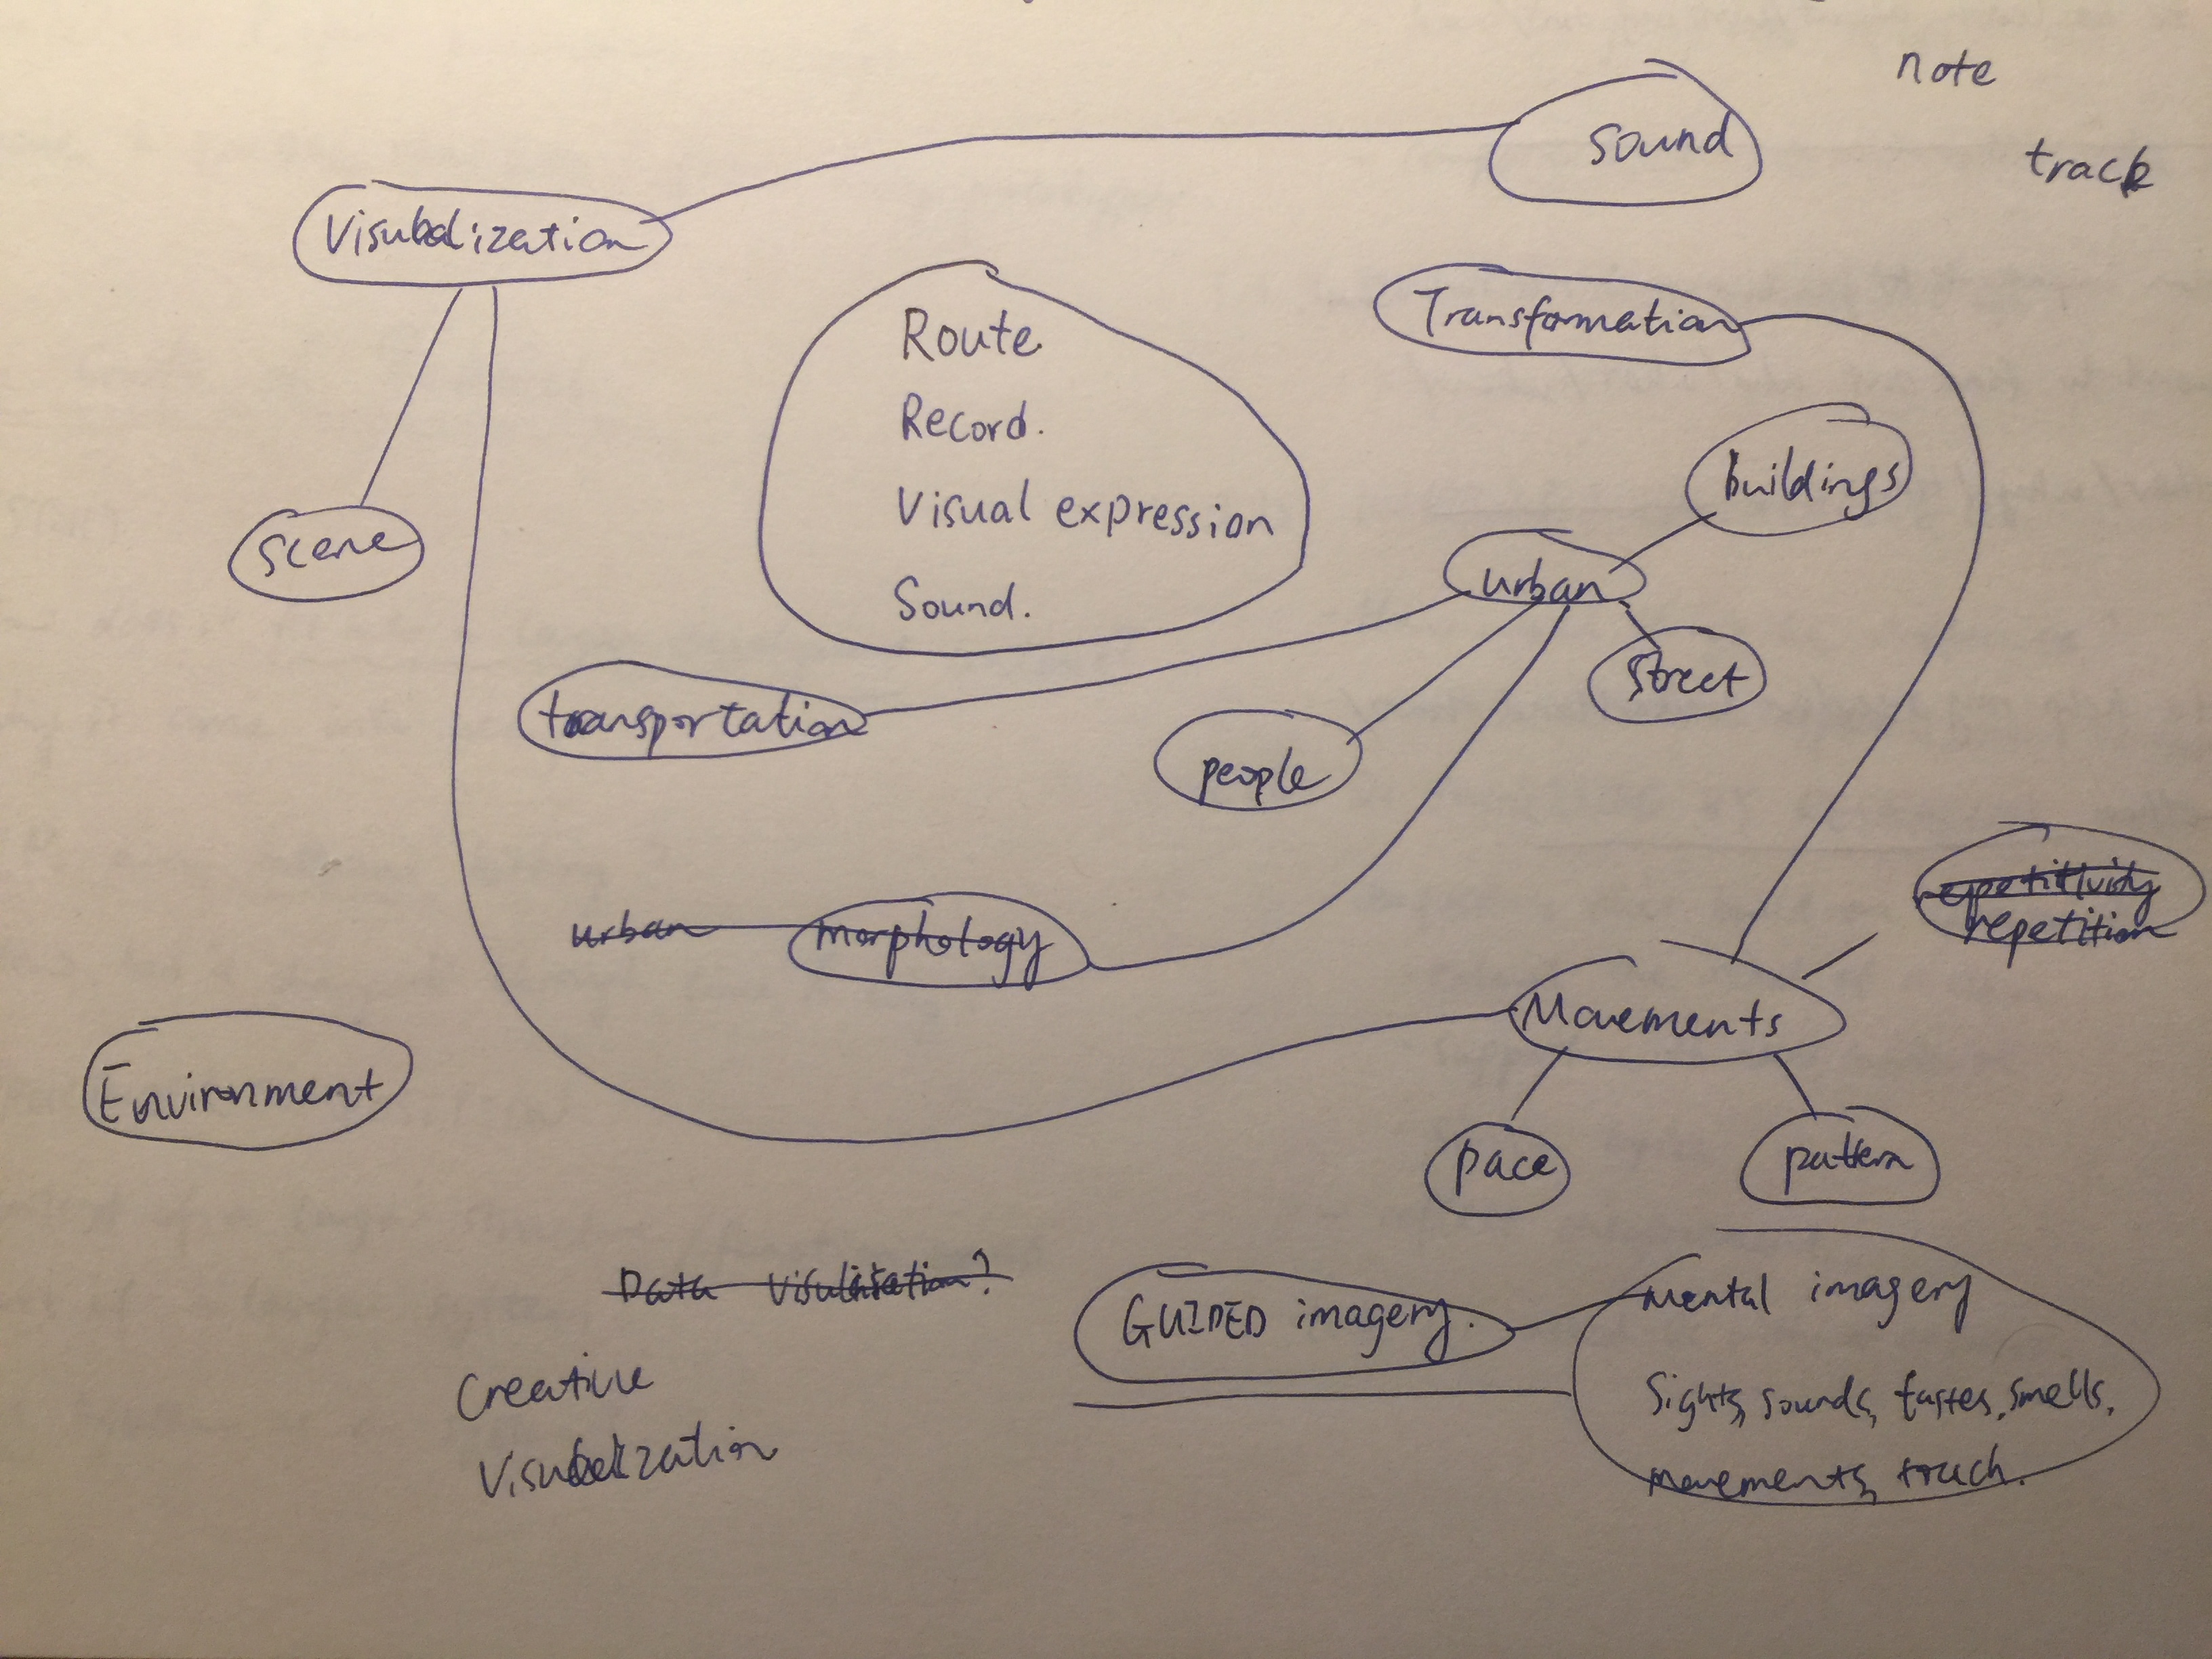 note
sound
track
Visualization
Transformation
Route
Record.
Visual expression
Sound.
buildings
urban
scene
street
transportation
people
repetitivity
repetition
urban morphology
Movements
Environment
pace
pattern
Data visulisation?
GUIDED imagery.
Mental imagery
Sights, sounds, tastes, smells,
movements, touch.
Creative
Visualization